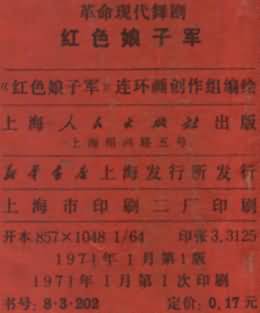 革命现代舞剧
红色娘子军
《红色娘子军》连环画创作组编绘
上海人民出版社出版
上海绍兴路五号
新华书店上海发行所发行
上海市印刷二厂印刷
开本 857×1048 1/64 印张 3.3125
1971年1月第1版
1971年1月第1次印刷
书号: 8·3·202 定价: 0.17元